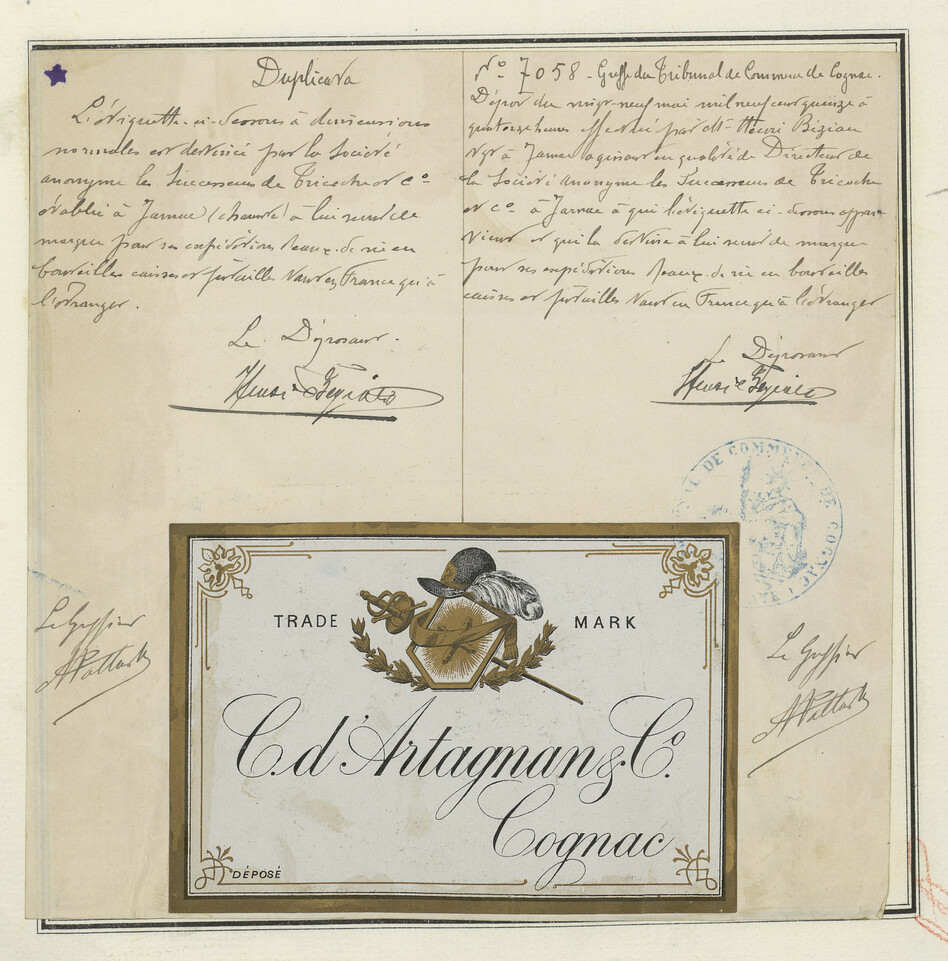 Duplicata
L'étiquette ci-dessous à dimensions
normales est destinée par la Société
anonyme les Successeurs de Tricoche et Cº
établie à Jarnac (charente) à lui servir de
marque pour ses expéditions d'eaux-de-vie en
bouteilles caisses et futailles tant en France qu'à
l'étranger.
Le Déposant.
Nº 7058 - Greffe du Tribunal de Commerce de Cognac.
Dépot du vingt-neuf mai mil neuf cent quinze à
quatorze heures effectué par Mr Henri
Ngt à Jarnac agissant en qualité de Directeur de
la Société anonyme les Successeurs de Tricoche
et Cº à Jarnac à qui l'étiquette ci-dessous appar-
tient et qui la destine à lui servir de marque
pour ses expéditions d'eaux-de-vie en bouteilles
caisses et futailles tant en France qu'à l'étranger
Le Déposant
Henri
Henri
DE COMMERCE DE COGNAC
Le Greffier
Le Greffier
TRADE MARK
C. d'Artagnan & Cº.
Cognac
DÉPOSÉ